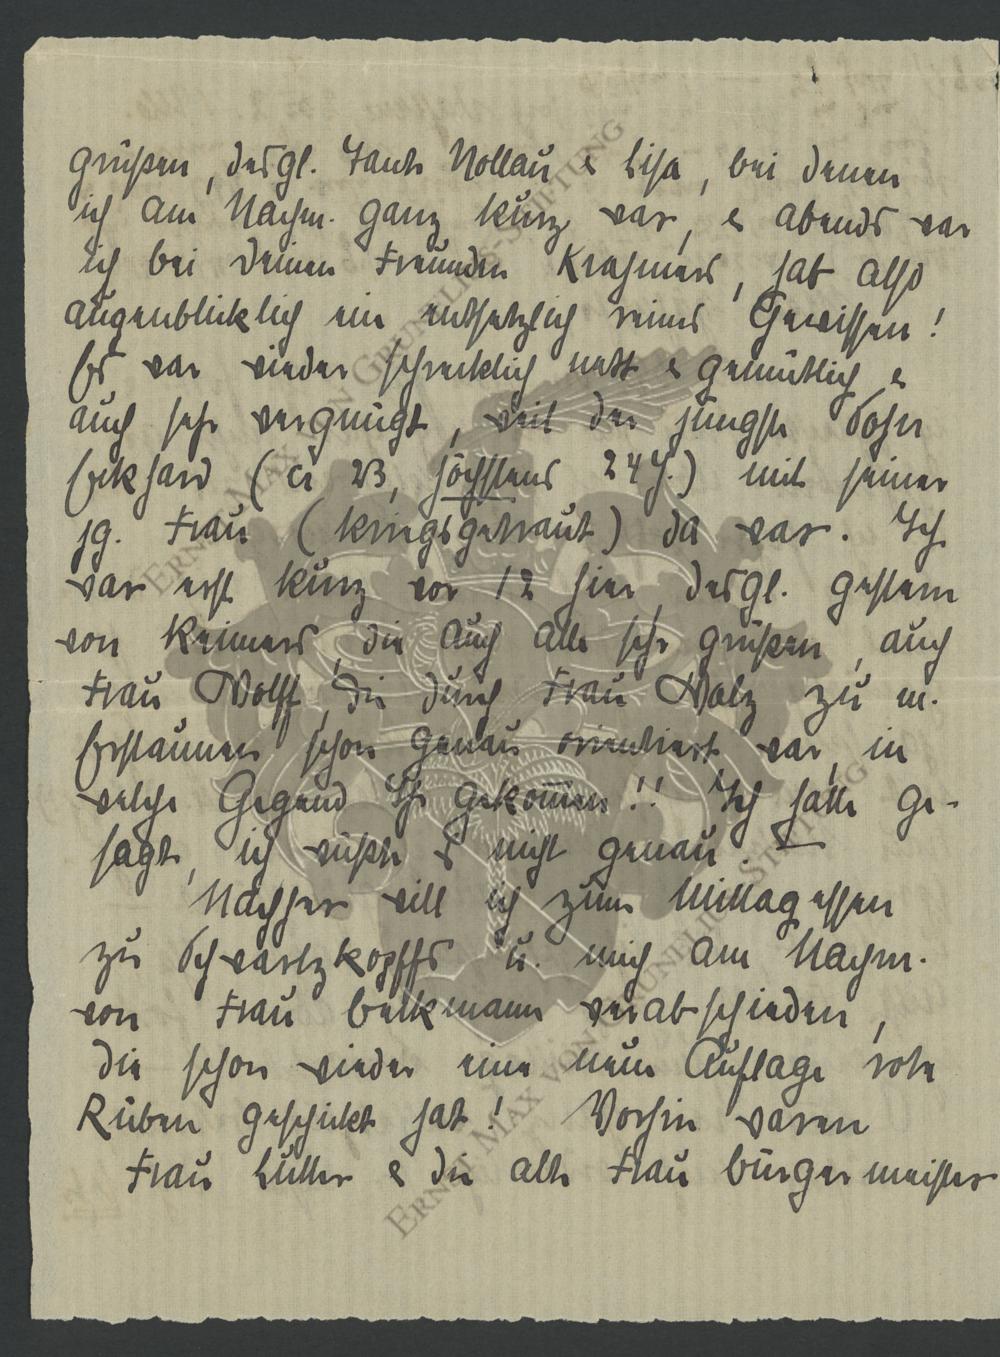 grüßen, desgl. Tante Nollau & Lisa, bei denen
ich am Nachm. ganz kurz war, & abends war
ich bei Deinen Freunden Krahmers, hab also
augenblicklich ein entsetzlich reines Gewissen!
Es war wieder schrecklich nett & gemütlich &
auch sehr vergnügt, weil der jüngste Sohn
Eckhard (ca 23, höchstens 24 J.) mit seiner
jg. Frau (kriegsgetraut) da war. Ich
war erst kurz vor 12 hier, desgl. gestern
von Reimers, die auch alle sehr grüßen, auch
Frau Wolff, die durch Frau Walz zu m.
Erstaunen schon genau orientiert war, in
welche Gegend Ihr gekom̅en!! Ich hätte ge-
sagt, ich wüßte es nicht genau. –
Nachher will ich zum Mittagessen
zu Schwartzkopffs u. mich am Nachm.
von Frau Beckmann verabschieden,
die schon wieder eine neue Auflage rote
Rüben geschickt hat! Vorhin waren
Frau Lütter & die alte Frau Bürgermeister
ERNST MAX VON GRUNELIUS-STIFTUNG
ERNST MAX VON GRUNELIUS-STIFTUNG